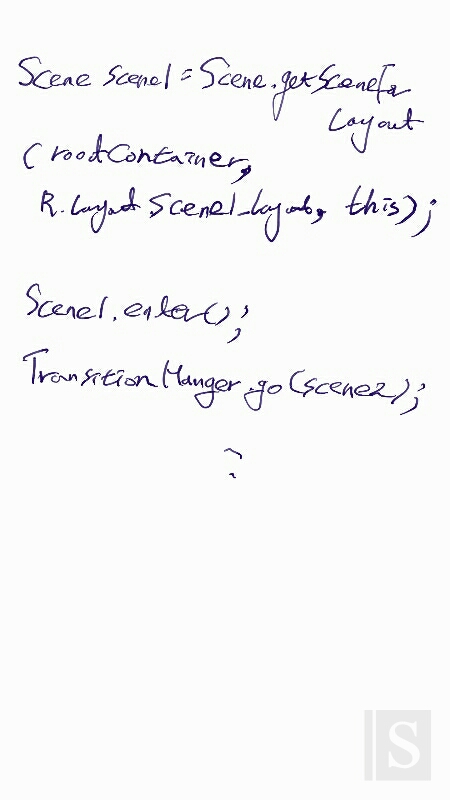 Scene scene1 = Scene.getSceneFor
Layout
( rootContainer,
R.layout.scene1_layout, this);
Scene1.enter();
TransitionManger.go(scene2);
?
S